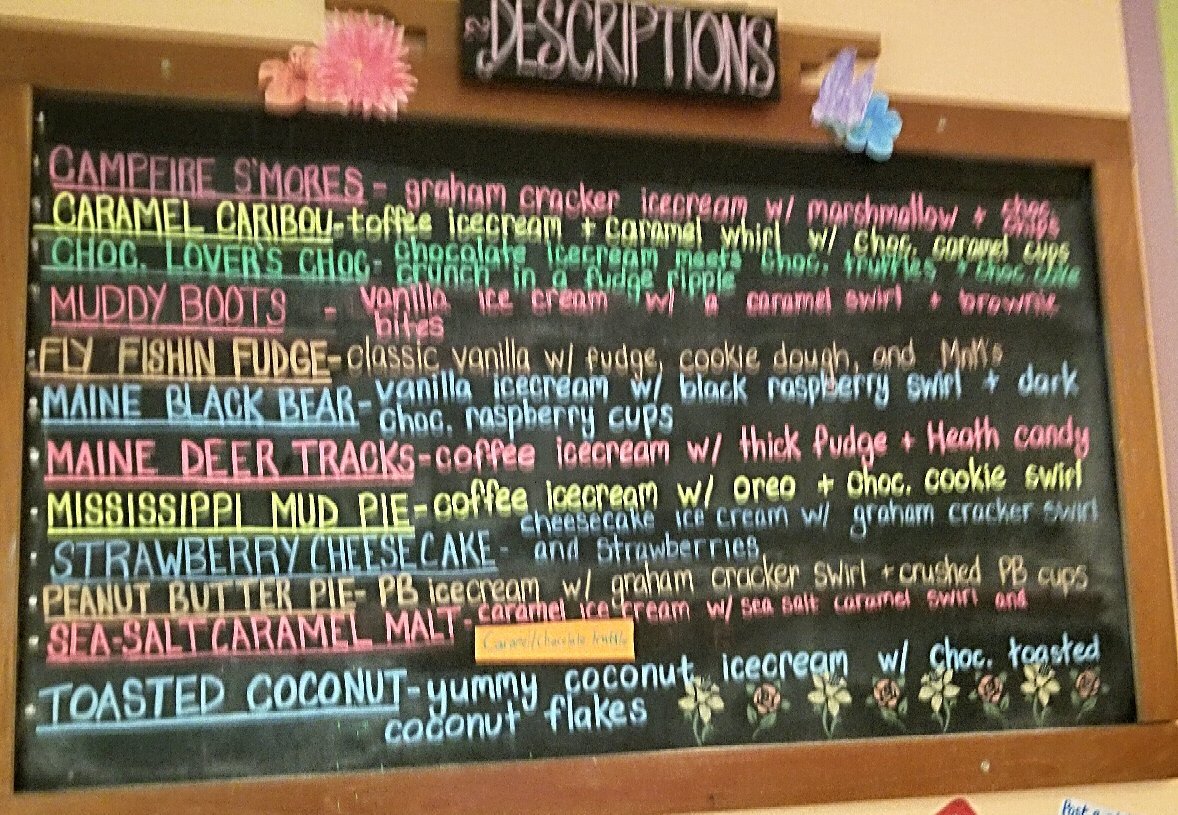 DESCRIPTIONS
CAMPFIRE S'MORES - graham cracker icecream w/ marshmallow + choc. chips
CARAMEL CARIBOU - toffee icecream + caramel whirl w/ choc. caramel cups
CHOC. LOVER'S CHOC - chocolate icecream meets choc. truffles + choc. cake
crunch in a fudge ripple
MUDDY BOOTS - vanilla ice cream w/ a caramel swirl + brownie
bites
FLY FISHIN FUDGE - classic vanilla w/ fudge, cookie dough, and MnM's
MAINE BLACK BEAR - vanilla icecream w/ black raspberry swirl + dark
choc. raspberry cups
MAINE DEER TRACKS - coffee icecream w/ thick fudge + Heath candy
MISSISSIPPI MUD PIE - coffee icecream w/ oreo + choc. cookie swirl
STRAWBERRY CHEESECAKE - cheesecake ice cream w/ graham cracker swirl
and strawberries
PEANUT BUTTER PIE - PB icecream w/ graham cracker swirl + crushed PB cups
SEA-SALT CARAMEL MALT - caramel ice cream w/ sea salt caramel swirl and
TOASTED COCONUT - yummy coconut icecream w/ choc. toasted
coconut flakes